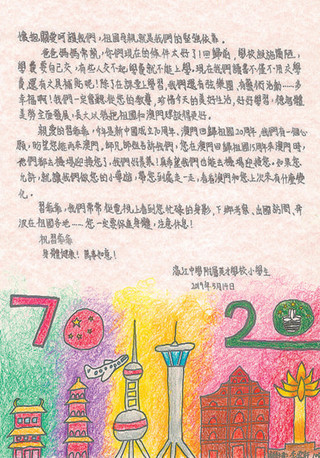 懷抱關愛呵護我們，祖國母親就是我們的堅強依靠。
爸爸媽媽常說，你們現在的條件太好了！回歸前，學校設施簡陋，
學費要自己交，有些人交不起學費就不能上學。現在我們讀書不僅不用交學
費還有大量補貼呢！除了在課堂上學習，我們還有弦樂團、舞蹈活動……多
幸福啊！我們一定聽從您的教導，珍惜今天的美好生活，好好學習，德智體
美勞全面發展，長大以後把祖國和澳門建設得更好。
親愛的習爺爺，今年是新中國成立70周年、澳門回歸祖國20周年，我們有一個心
願，盼望您能再來澳門。師兄師姐告訴我們，您在澳門回歸祖國15周年來澳門時，
他們都去機場迎接您了，我們好羨慕！真希望我們也能去機場迎接您。如果您
允許，就讓我們做您的小導遊，帶您到處走一走，看看澳門和您上次來有什麼變
化。
習爺爺，我們常常從電視上看到您忙碌的身影，下鄉考察、出國訪問、奔
波在祖國各地……您一定要保重身體，注意休息！
祝習爺爺
身體健康！萬事如意！
濠江中學附屬英才學校小學生
2019年5月14日
70
20